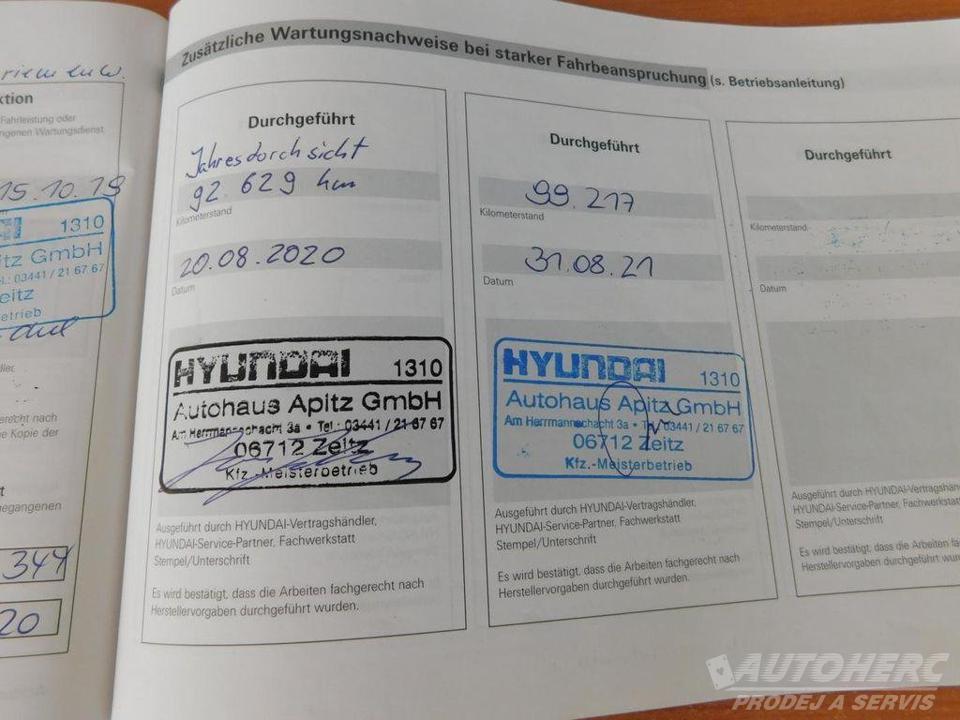 Zusätzliche Wartungsnachweise bei starker Fahrbeanspruchung (s. Betriebsanleitung)
ktion
Fahrleistung oder
ngenen Wartungsdienst
15.10.19
1310
pitz GmbH
el.: 03441 / 21 67 67
eitz
etrieb
ller,
erecht nach
e Kopie der
t
egangenen
344
20
Durchgeführt
Jahresdorchsicht
92.629 km
Kilometerstand
20.08.2020
Datum
HYUNDAI 1310
Autohaus Apitz GmbH
Am Herrmannschacht 3a • Tel.: 03441 / 21 67 67
06712 Zeitz
Kfz.-Meisterbetrieb
Ausgeführt durch HYUNDAI-Vertragshändler,
HYUNDAI-Service-Partner, Fachwerkstatt
Stempel/Unterschrift
Es wird bestätigt, dass die Arbeiten fachgerecht nach
Herstellervorgaben durchgeführt wurden.
Durchgeführt
99.217
Kilometerstand
31.08.21
Datum
HYUNDAI 1310
Autohaus Apitz GmbH
Am Herrmannschacht 3a • Tel.: 03441 / 21 67 67
06712 Zeitz
Kfz.-Meisterbetrieb
Ausgeführt durch HYUNDAI-Vertragshändler,
HYUNDAI-Service-Partner, Fachwerkstatt
Stempel/Unterschrift
Es wird bestätigt, dass die Arbeiten fachgerecht nach
Herstellervorgaben durchgeführt wurden.
Durchgeführt
Kilometerstand
Datum
Ausgeführt durch HYUNDAI-Vertragshändler
HYUNDAI-Service-Partner, Fachwerkstatt
Stempel/Unterschrift
Es wird bestätigt, dass die Arbeiten fachgerec
Herstellervorgaben durchgeführt wurden.
AUTOHERC
PRODEJ A SERVIS